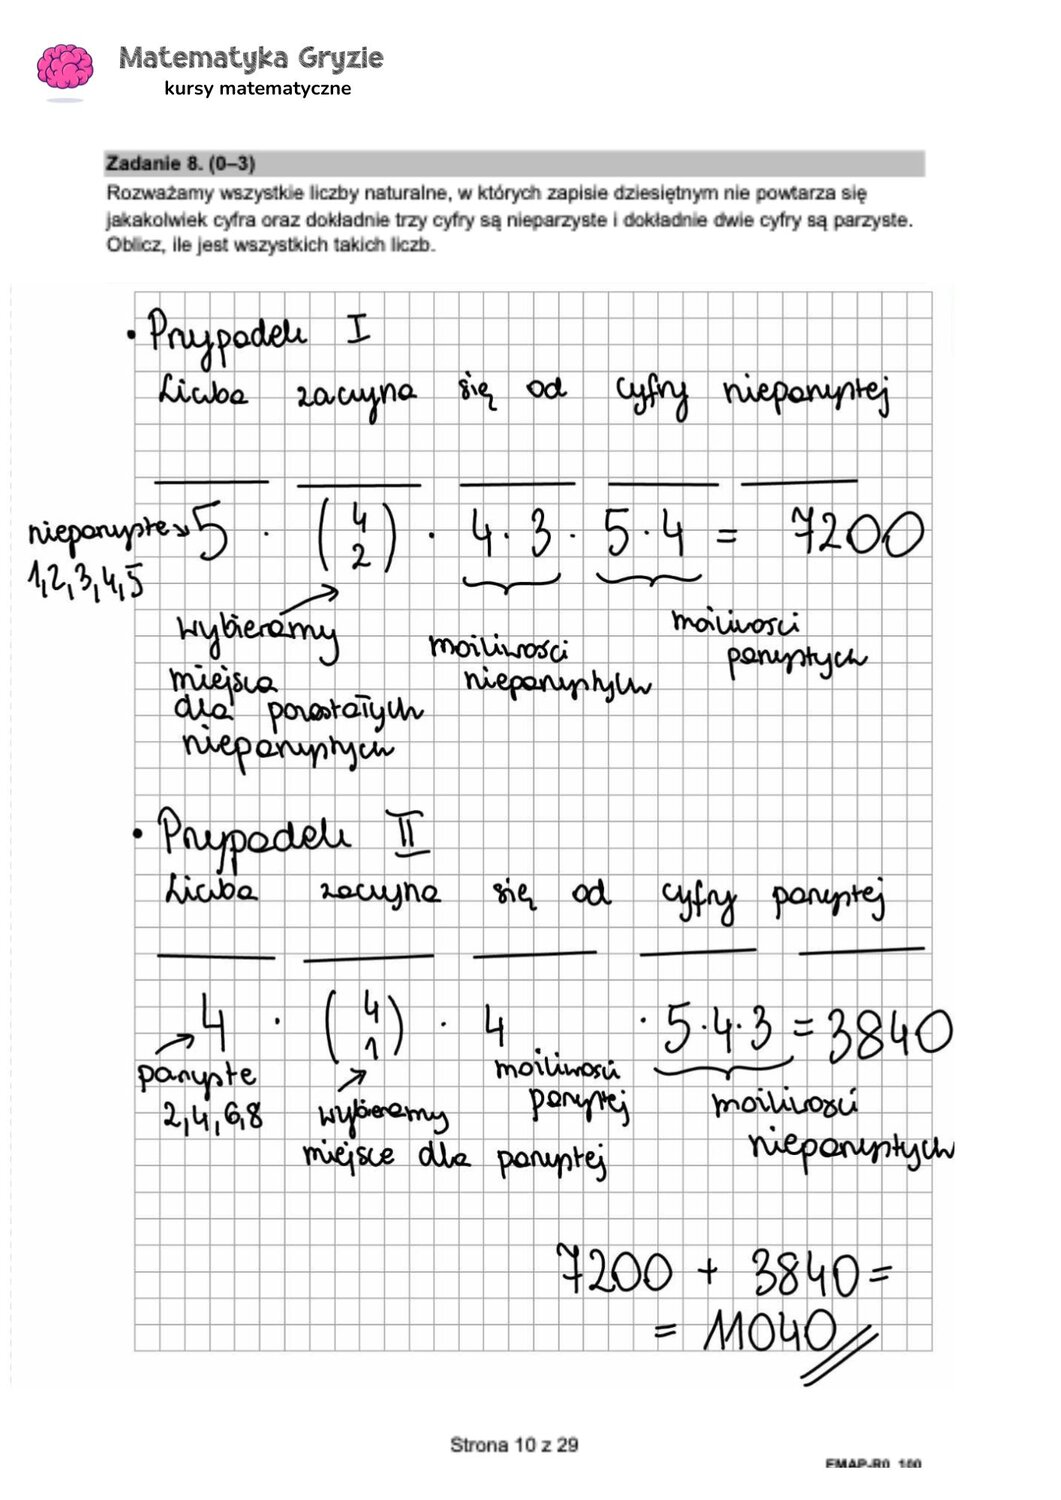 Matematyka Gryzie
kursy matematyczne
Zadanie 8. (0–3)
Rozważamy wszystkie liczby naturalne, w których zapisie dziesiętnym nie powtarza się
jakakolwiek cyfra oraz dokładnie trzy cyfry są nieparzyste i dokładnie dwie cyfry są parzyste.
Oblicz, ile jest wszystkich takich liczb.
• Przypadek I
Liczba zaczyna się od cyfry nieparzystej
nieparzyste 5 · (4 2) · 4 · 3 · 5 · 4 = 7200
1,2,3,4,5
wybieramy miejsca dla pozostałych nieparzystych
możliwości nieparzystych
możliwości parzystych
• Przypadek II
Liczba zaczyna się od cyfry parzystej
4 · (4 1) · 4 · 5·4·3 = 3840
parzyste
2,4,6,8
wybieramy
miejsce dla parzystej
możliwości
parzystej
możliwości
nieparzystych
7200 + 3840 =
= 11040
Strona 10 z 29
EMAP-R0_100